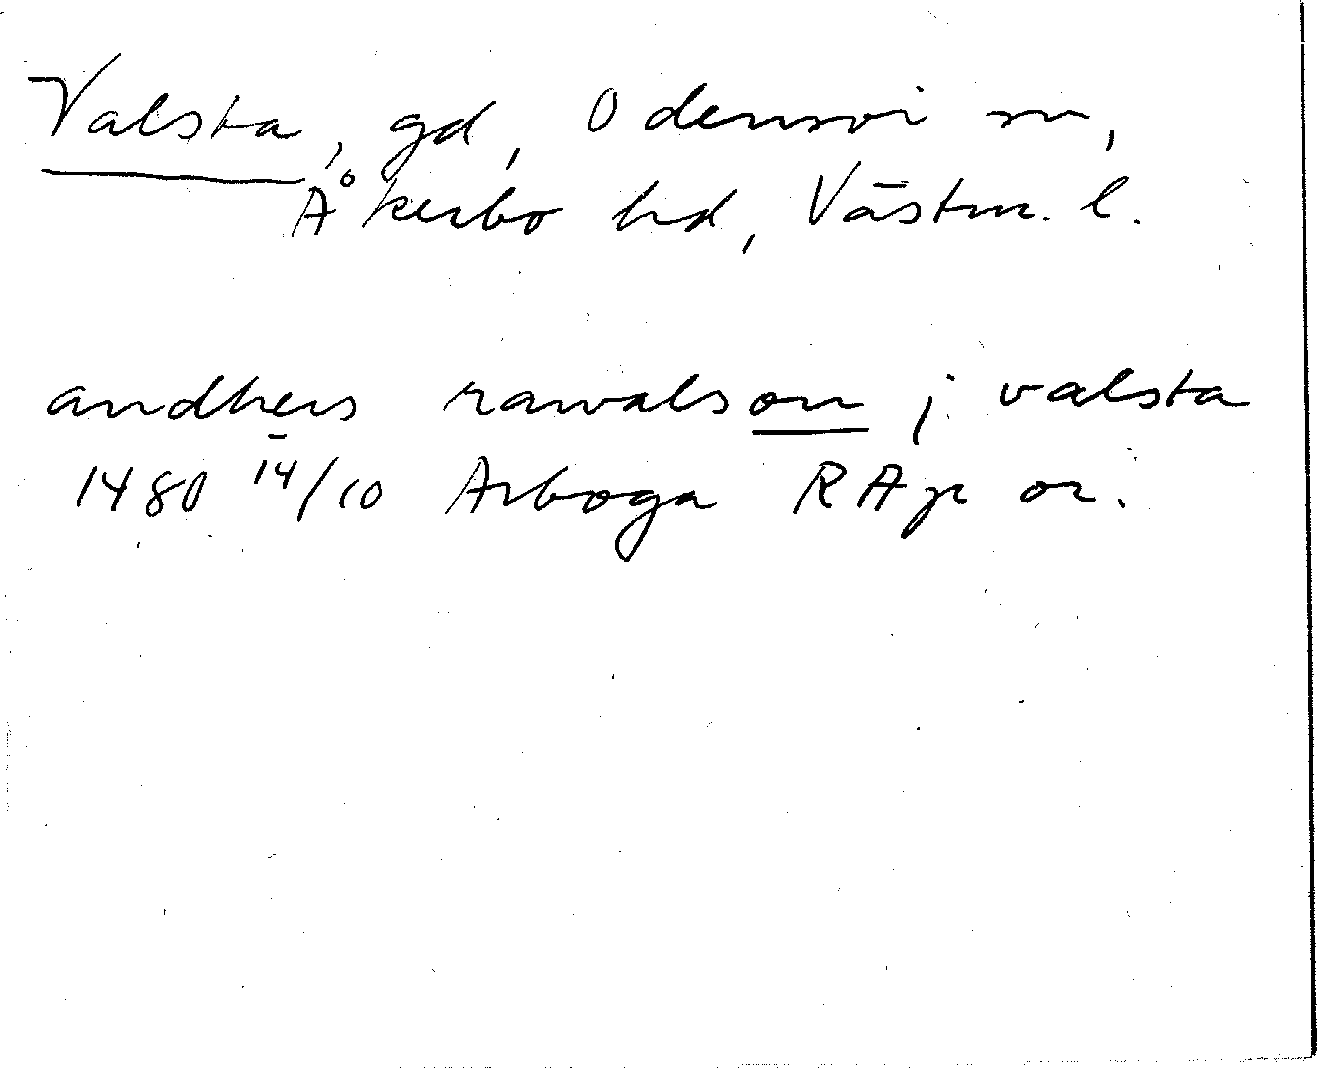 Valsta, gd, Odensvi sn,
Åkerbo hd, Västm. l.
andhers rawalson j valsta
1480 14/10 Arboga RAp or.